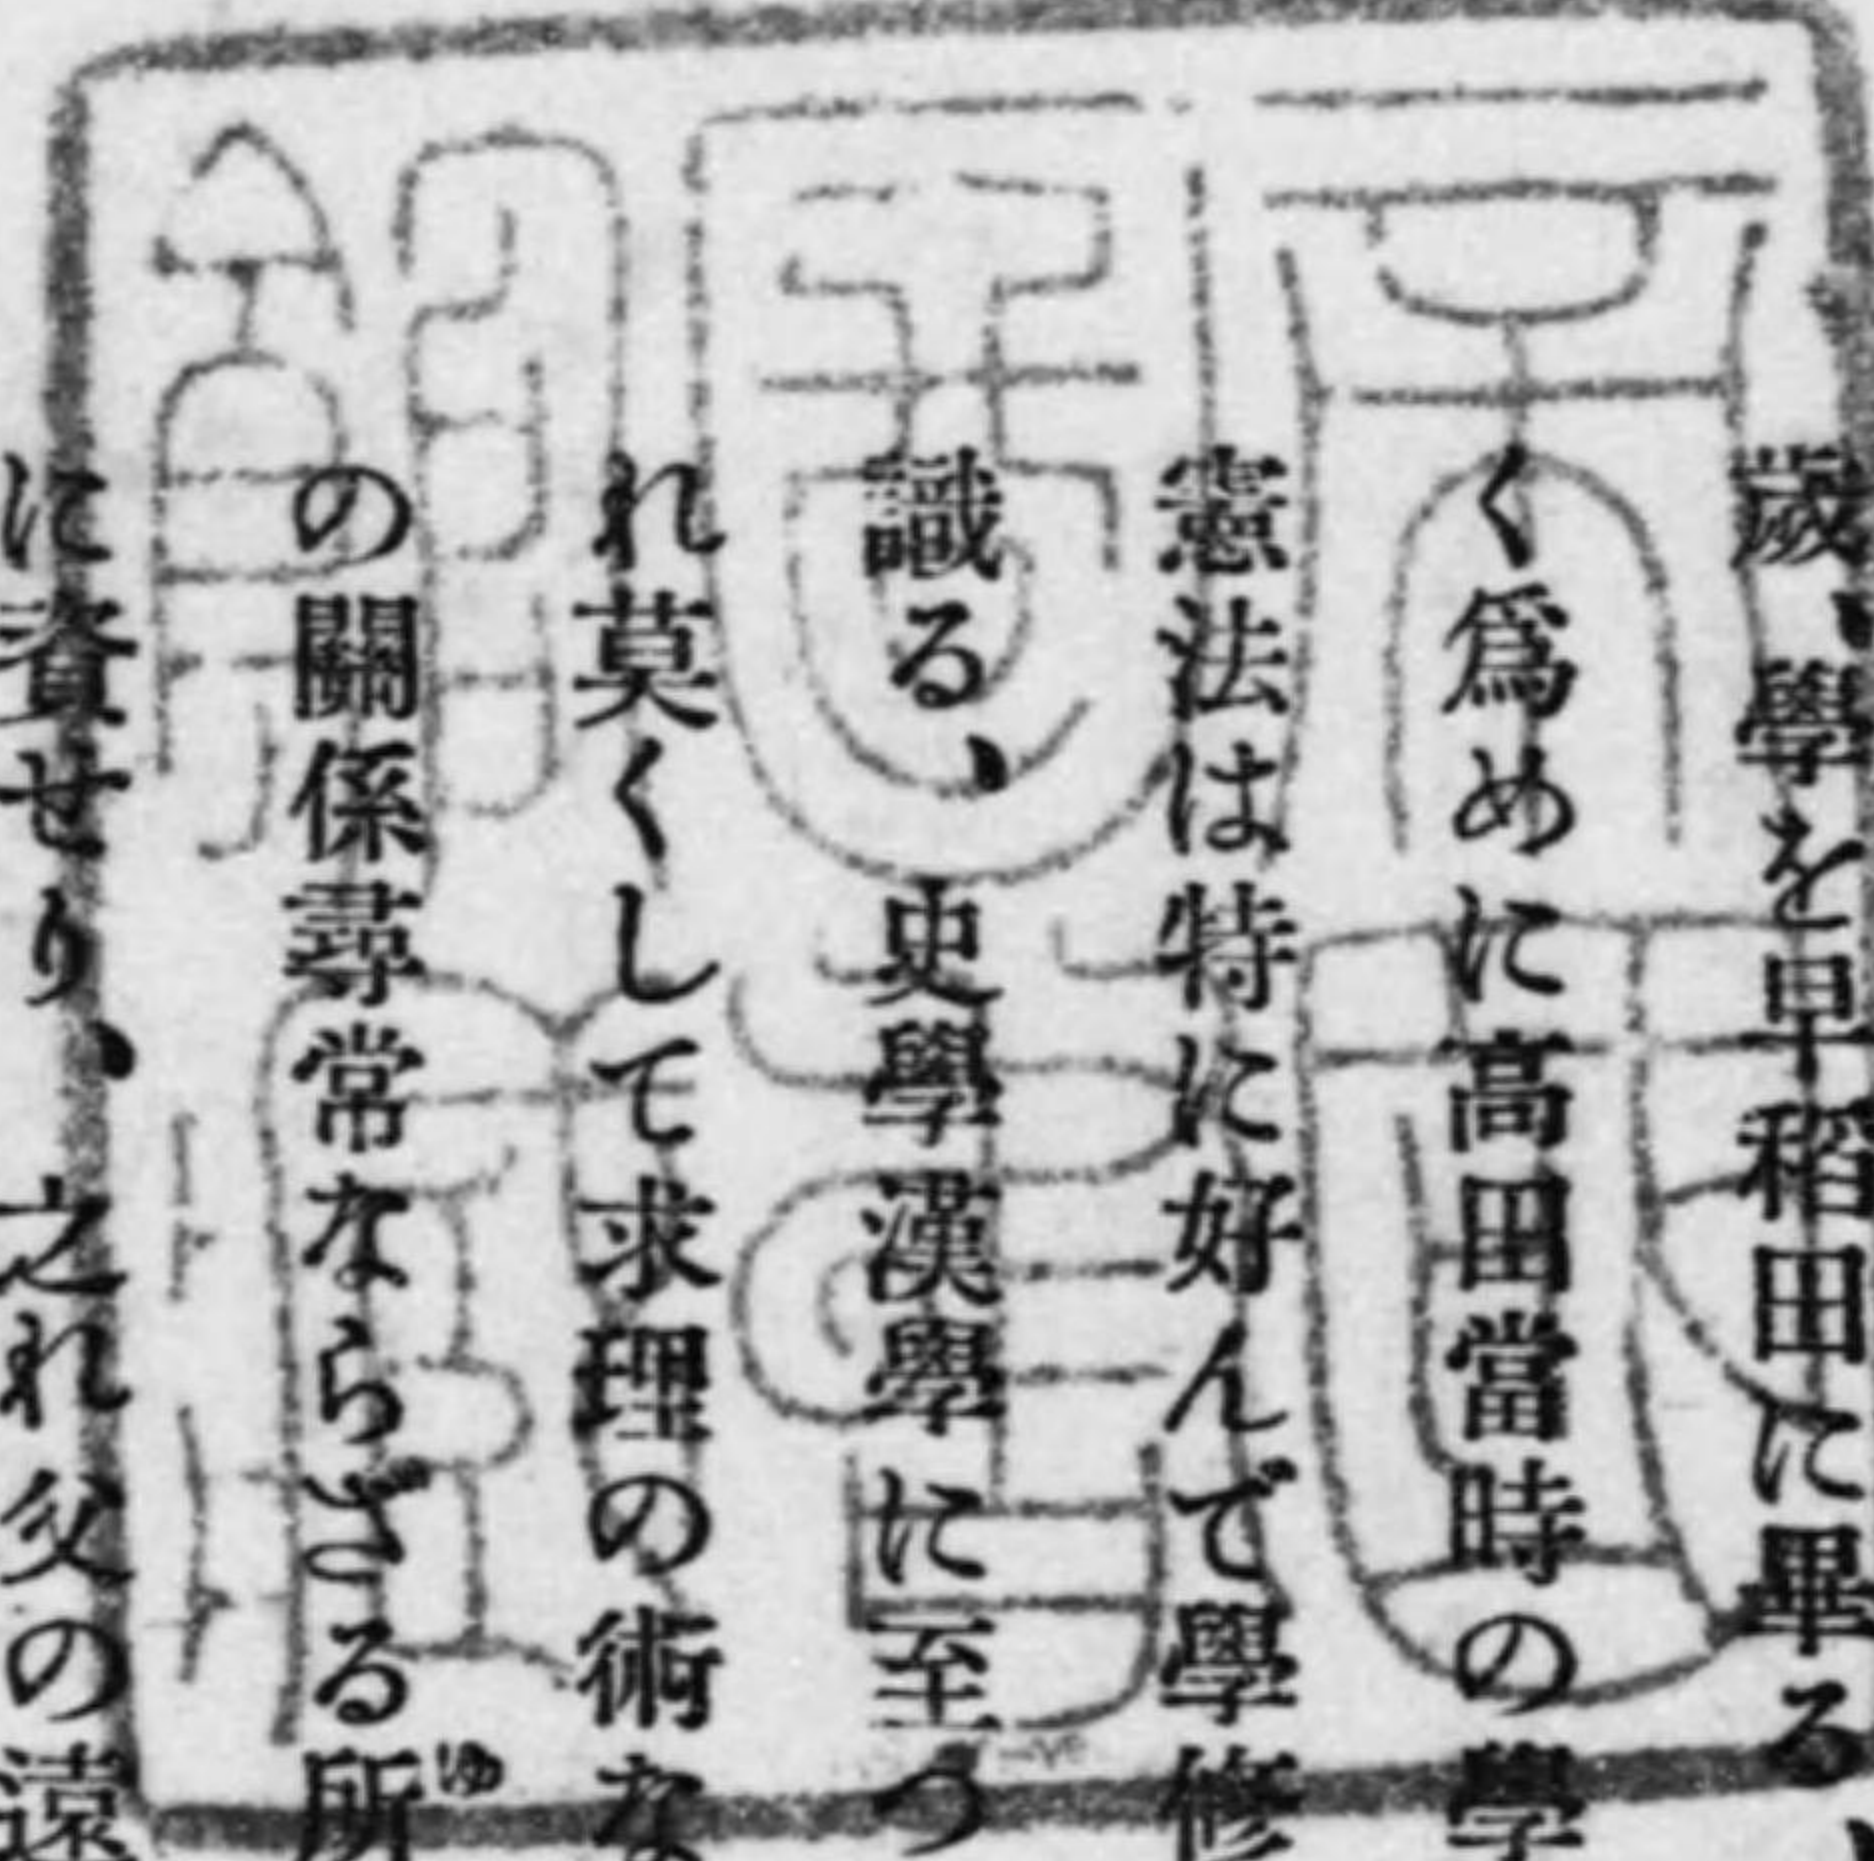 歲、學を早稻田に畢る、
く爲めに高田當時の學
憲法は特に好んで學修
識る、史學漢學に至つ
れ莫くして求理の術な
の關係尋常ならざる所ゆ
に資せり、之れ父の遠
帝國圖書館藏